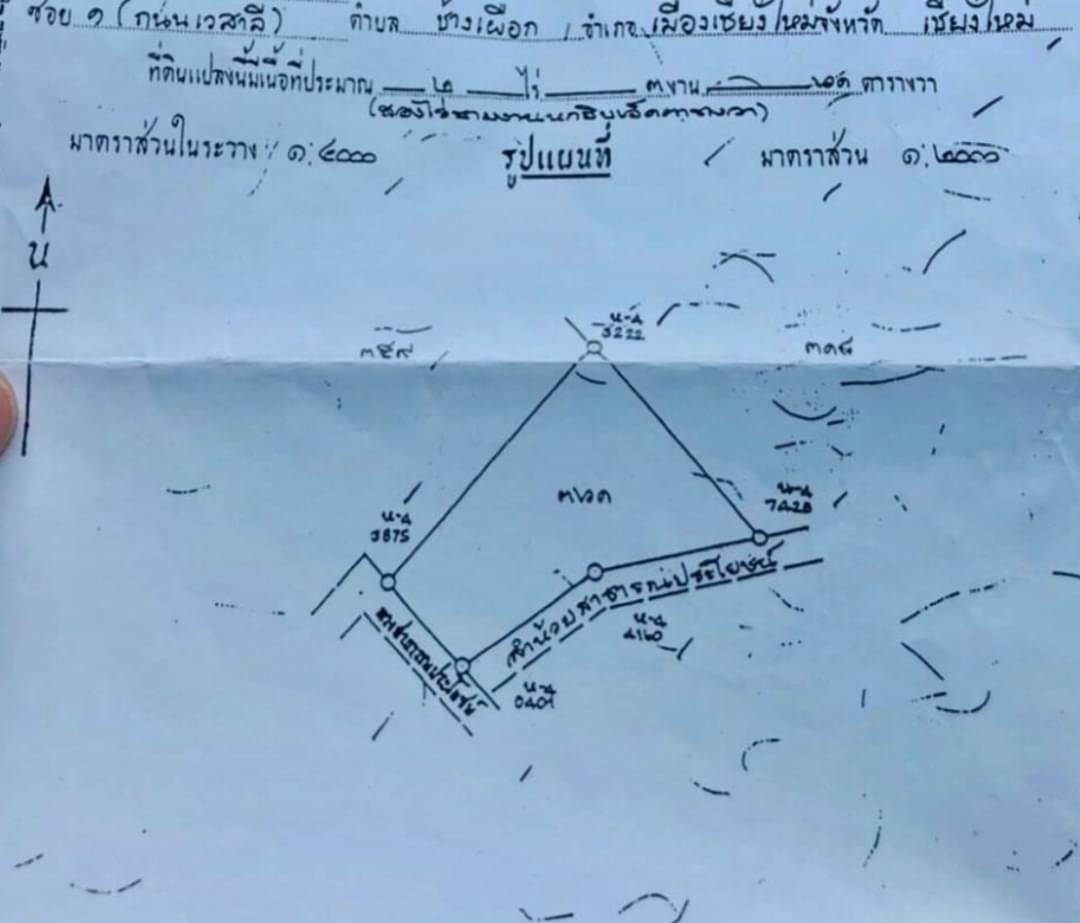 ซอย ๑ (ถนนเวสาลี) ตำบล ช้างเผือก อำเภอ เมืองเชียงใหม่ จังหวัด เชียงใหม่
ที่ดินแปลงนี้มีเนื้อที่ประมาณ ๒ ไร่ ๓ งาน ๖๑ ตารางวา
(สองไร่สามงานหกสิบเอ็ดตารางวา)
มาตราส่วนในระวาง ๑:๔๐๐๐ รูปแผนที่ มาตราส่วน ๑:๒๐๐๐
น
น-ด
๓๕๙
น-ด
น-ด
3875
น-ด
ลำห้วยสาธารณประโยชน์
ทางสาธารณประโยชน์
น-ด
4160
น-ด